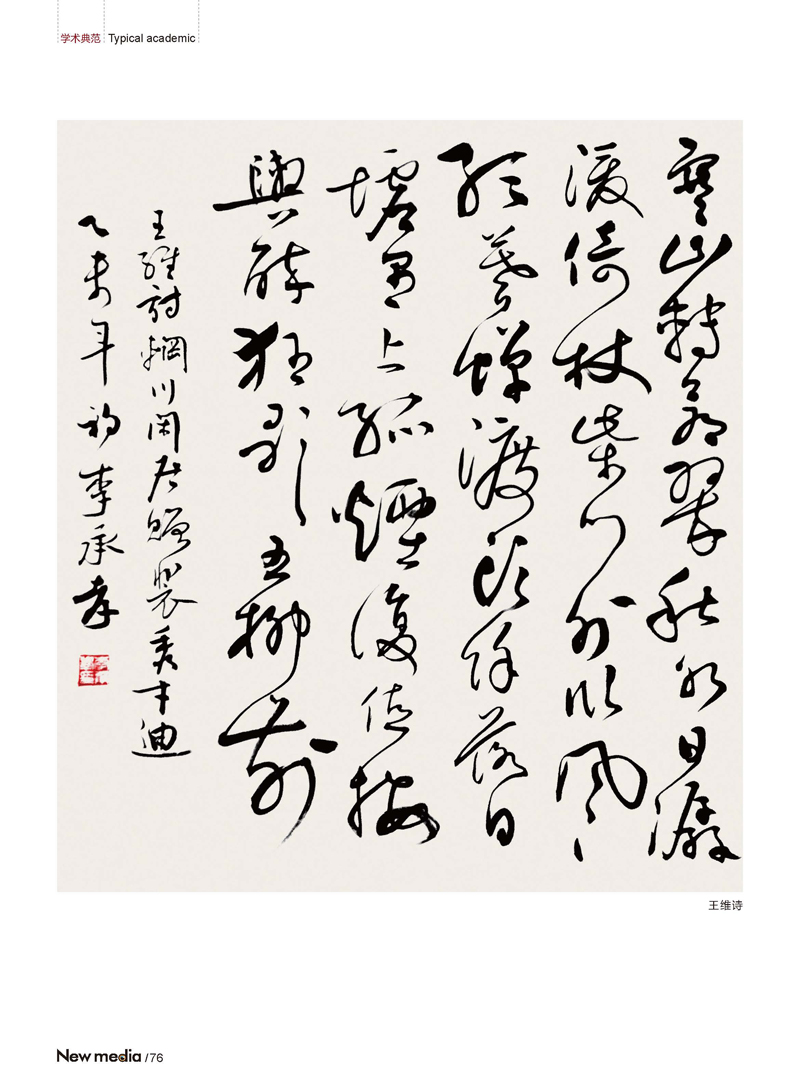 学术典范 Typical academic
寒山轉蒼翠秋水日潺
湲倚杖柴門外臨風
聽暮蟬渡頭餘落日
墟里上孤煙復值接
輿醉狂歌五柳前
王維詩輞川閑居贈裴秀才迪
乙未年初李承孝
王维诗
New media /76